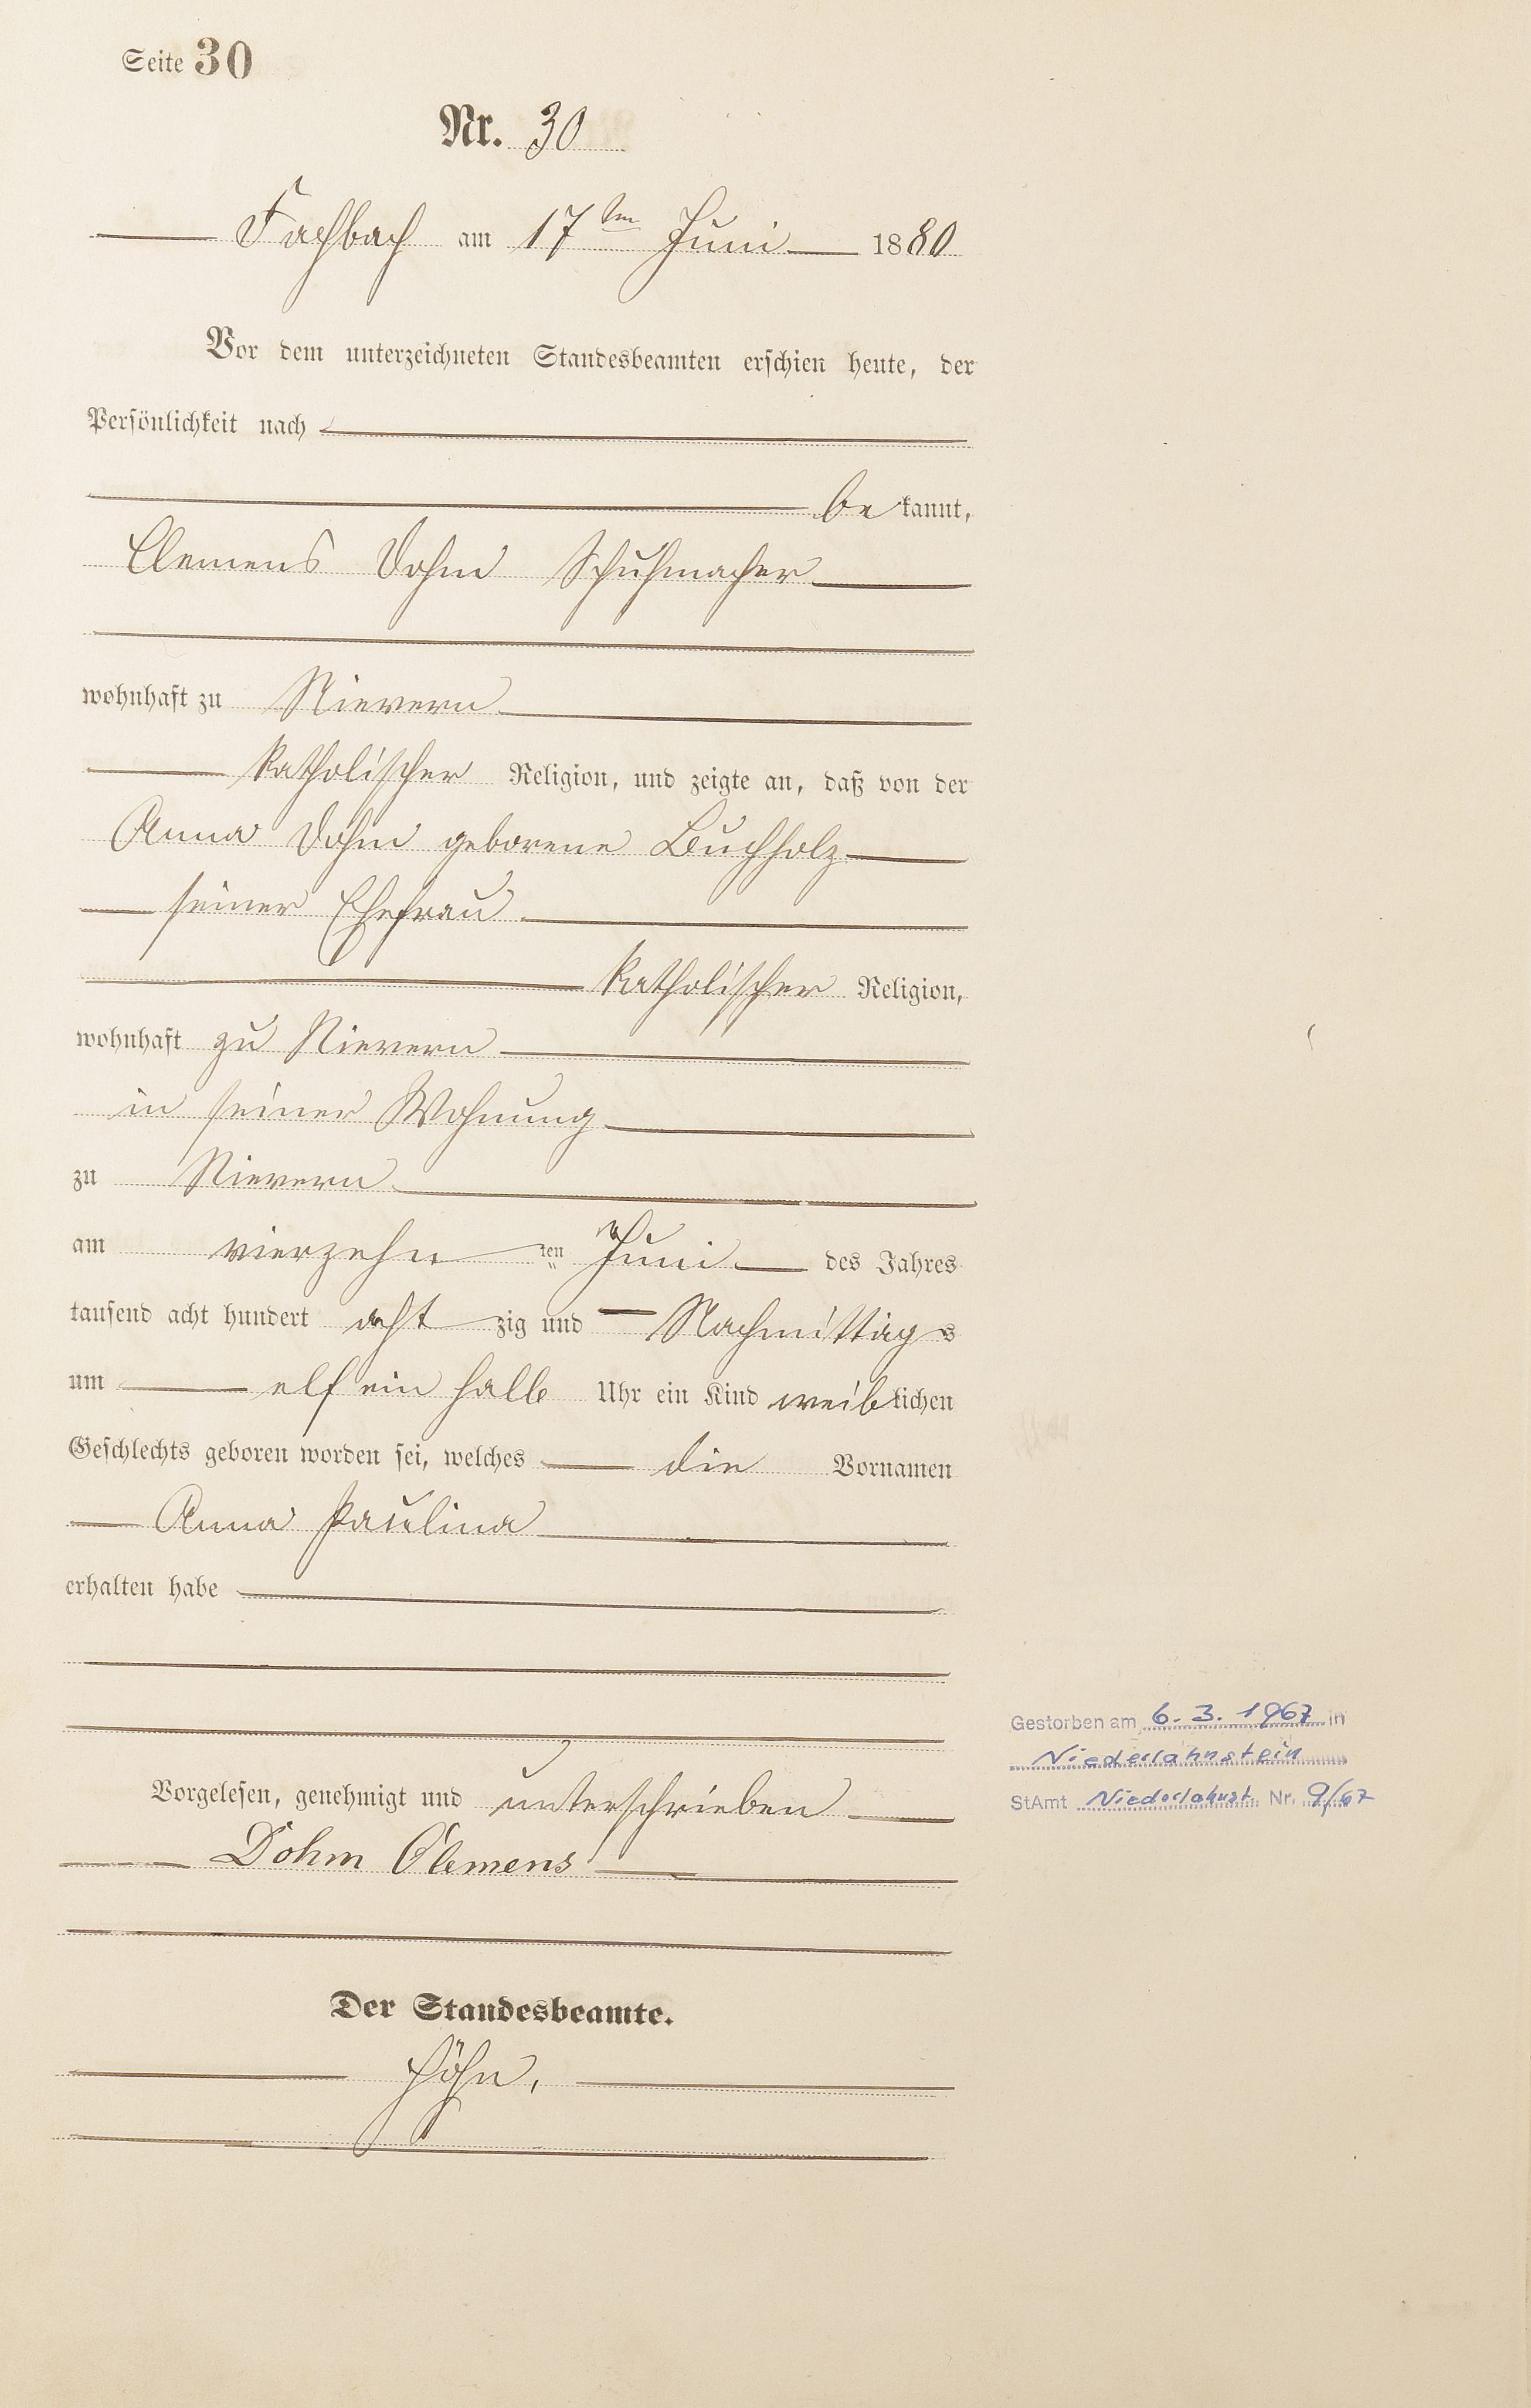 Seite 30
Nr. 30
Fachbach am 17ten Juni 1880
Vor dem unterzeichneten Standesbeamten erschien heute, der
Persönlichkeit nach
be kannt,
Clemens Dohm Schuhmacher
wohnhaft zu Nievern
katholischer Religion, und zeigte an, daß von der
Anna Dohm geborene Buchholz
seiner Ehefrau
katholischer Religion,
wohnhaft zu Nievern
in seiner Wohnung
zu Nievern
am vierzehn ten Juni des Jahres
tausend acht hundert acht zig und Nachmittags
um elf ein halb Uhr ein Kind weiblichen
Geschlechts geboren worden sei, welches die Vornamen
Anna Paulina
erhalten habe
Vorgelesen, genehmigt und unterschrieben
Dohm Clemens
Der Standesbeamte.
Höhn.
Gestorben am 6. 3. 1967 in
Niederlahnstein
StAmt Niederlahnst. Nr. 9/67